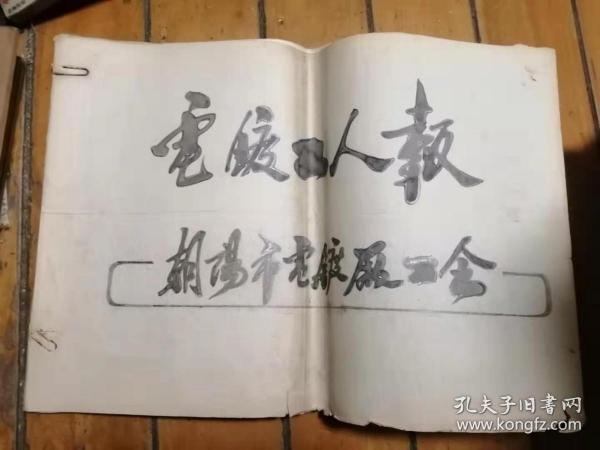 電鍍工人報
朝陽市電鍍厰工会
孔夫子旧书网
www.kongfz.com